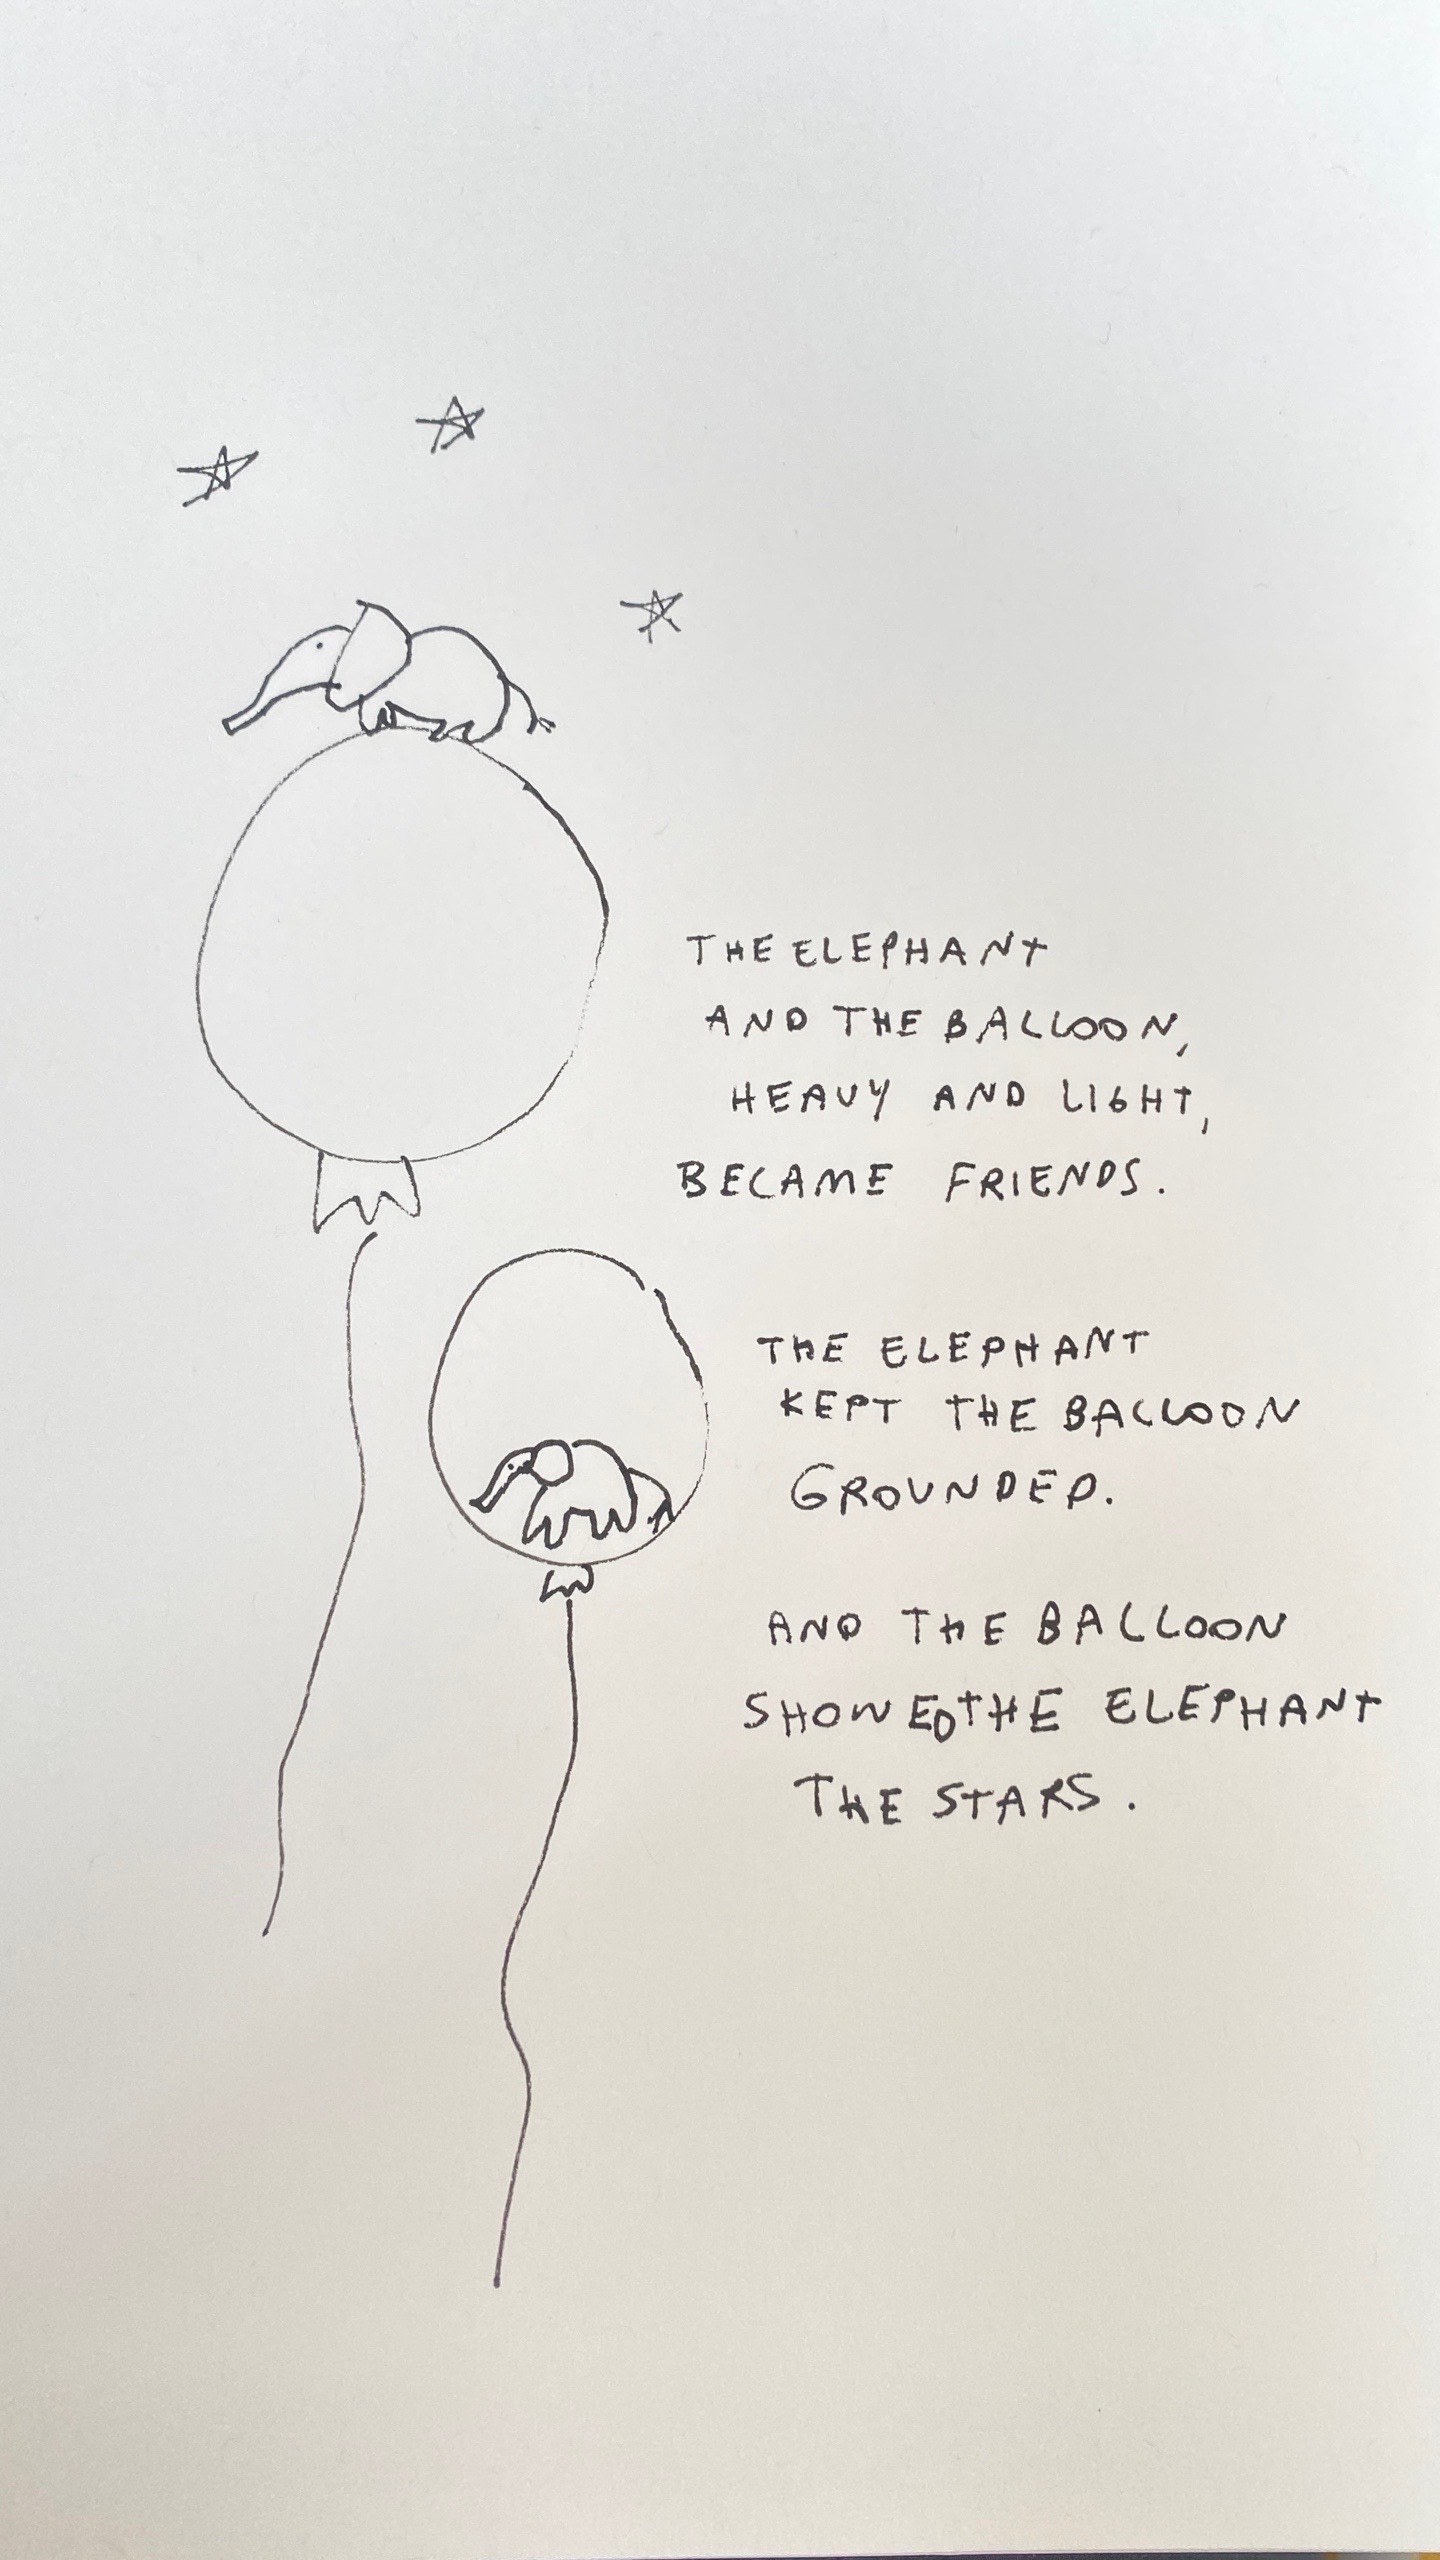 THE ELEPHANT
AND THE BALLOON,
HEAVY AND LIGHT,
BECAME FRIENDS.
THE ELEPHANT
KEPT THE BALLOON
GROUNDED.
AND THE BALLOON
SHOWED THE ELEPHANT
THE STARS.